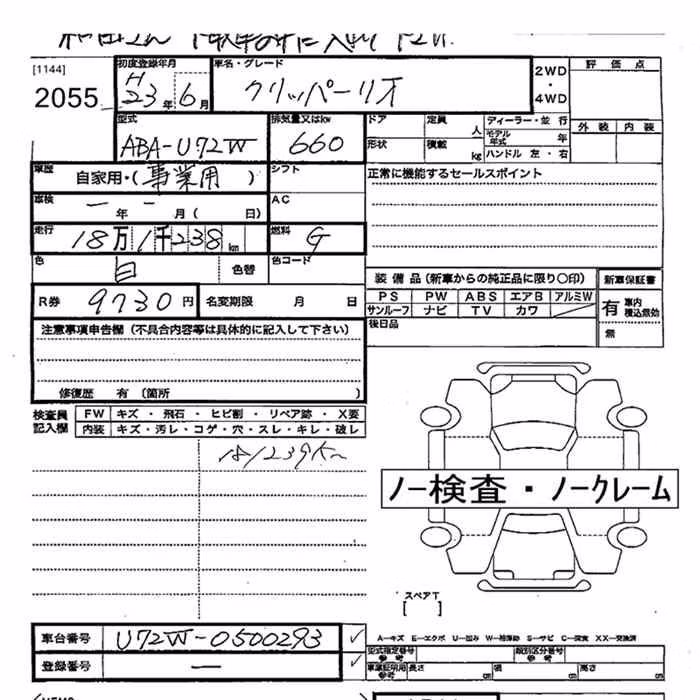 [1144]
2055
初度登録年月
H23年6月
車名・グレード
クリッパーリオ
2WD
・
4WD
評価点
外装 内装
型式
ABA-U72W
排気量又はkw
660
ドア
定員 人
ディーラー・並行
モデル年式 年
形状
積載 kg
ハンドル 左・右
車歴
自家用・(事業用)
シフト
正常に機能するセールスポイント
車検
年 月( 日)
AC
走行
18万1千238km
燃料
G
色
白
色替
色コード
装備品(新車からの純正品に限り〇印)
新車保証書
PS PW ABS エアB アルミW
サンルーフ ナビ TV カワ
有 車内積込無効
無
R券
9730円
名変期限 月 日
後日品
注意事項申告欄(不具合内容等は具体的に記入して下さい)
修復歴 有〔箇所 〕
検査員記入欄
FW キズ・飛石・ヒビ割・リペア跡・X要
内装 キズ・汚レ・コゲ・穴・スレ・キレ・破レ
181239Km
ノー検査・ノークレーム
スペアT
[ ]
車台番号
U72W-0500293 ✓
登録番号
— ✓
A—キズ E—エクボ U—凹み W—補修跡 S—サビ C—腐食 XX—交換済
型式指定番号
参考
類別区分番号
参考
車庫証明用
参考
長さ cm
幅 cm
高さ cm